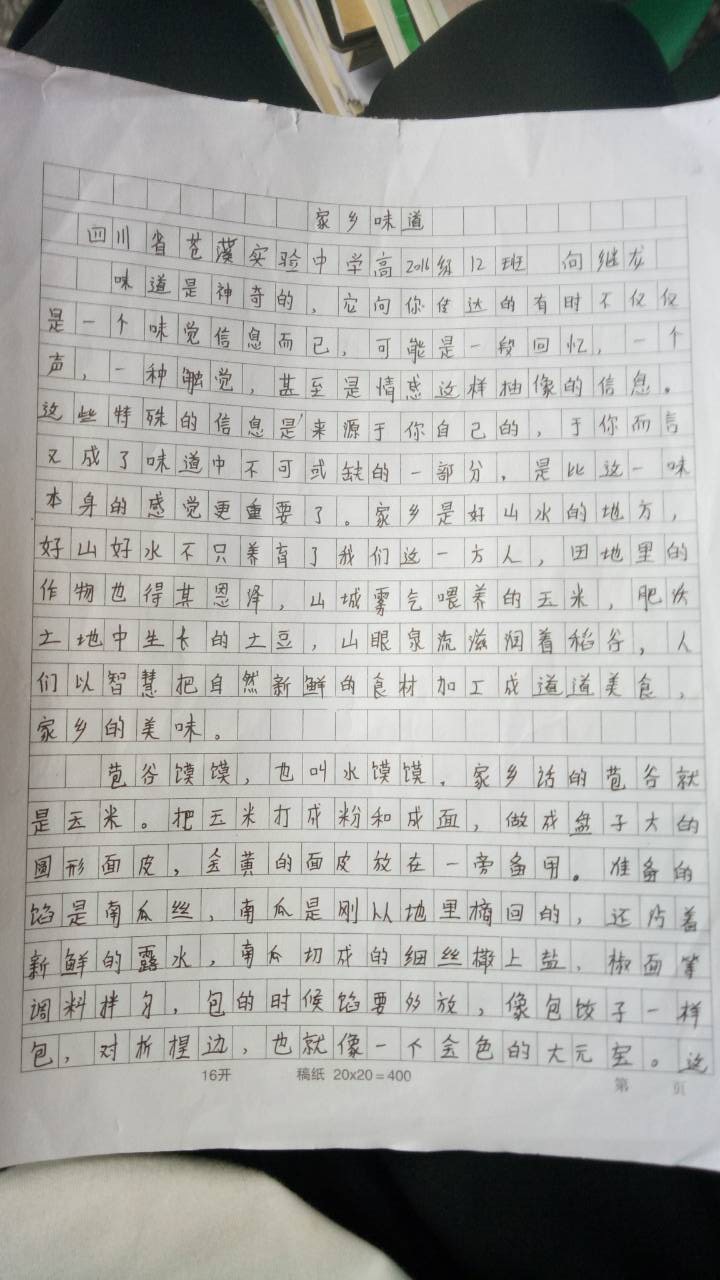 家乡味道
四川省苍溪实验中学高2016级12班 向继龙
味道是神奇的，它向你传达的有时不仅仅
是一个味觉信息而已，可能是一段回忆，一个
声，一种触觉，甚至是情感这样抽像的信息。
这些特殊的信息是来源于你自己的，于你而言
又成了味道中不可或缺的一部分，是比这一味
本身的感觉更重要了。家乡是好山水的地方，
好山好水不只养育了我们这一方人，田地里的
作物也得其恩泽，山城雾气喂养的玉米，肥沃
土地中生长的土豆，山眼泉流滋润着稻谷，人
们以智慧把自然新鲜的食材加工成道道美食，
家乡的美味。
苞谷馍馍，也叫水馍馍．家乡话的苞谷就
是玉米。把玉米打成粉和成面，做成盆子大的
圆形面皮，金黄的面皮放在一旁备用。准备的
馅是南瓜丝，南瓜是刚从地里摘回的，还沾着
新鲜的露水，南瓜切成的细丝撒上盐、椒面等
调料拌匀，包的时候馅要多放，像包饺子一样
包，对折捏边，也就像一个金色的大元宝。这
16开 稿纸 20x20＝400 第 页